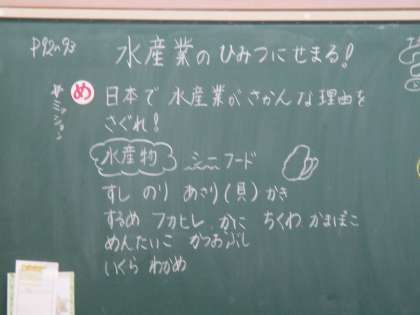 P92~93 水産業のひみつにせまる!
ミッション
め 日本で水産業がさかんな理由を
さぐれ!
水産物 シーフード
すし のり あさり(貝) かき
するめ フカヒレ かに ちくわ かまぼこ
めんたいこ かつおぶし
いくら わかめ